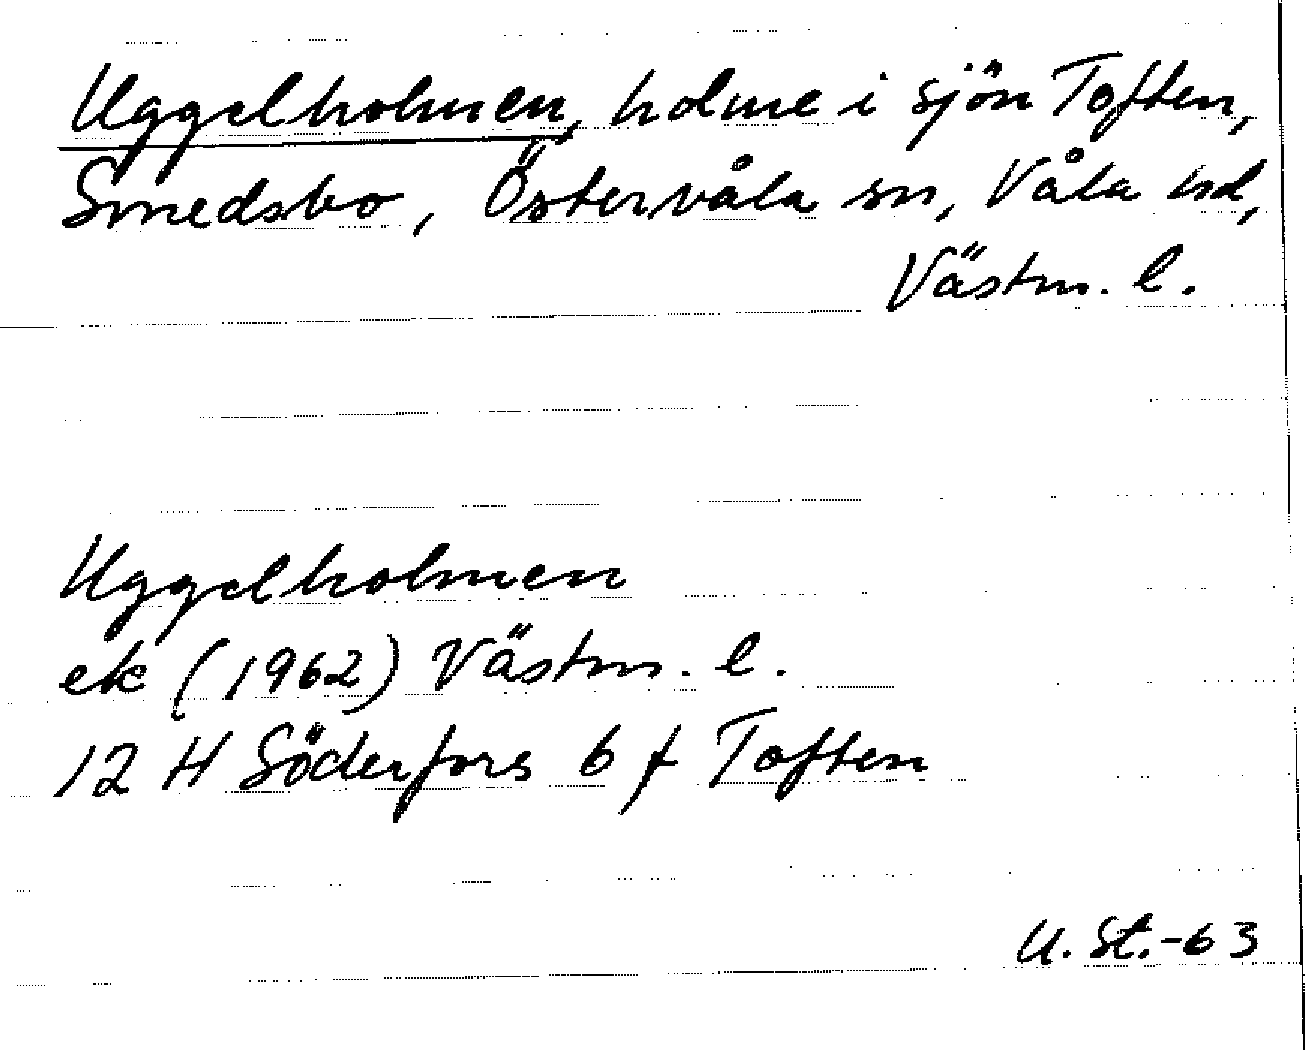 Uggelholmen, holme i sjön Toften,
Smedsbo, Östervåla sn, Våla hd,
Västm. l.
Uggelholmen
ek (1962) Västm. l.
12 H Söderfors 6 f Toften
U. St.-63